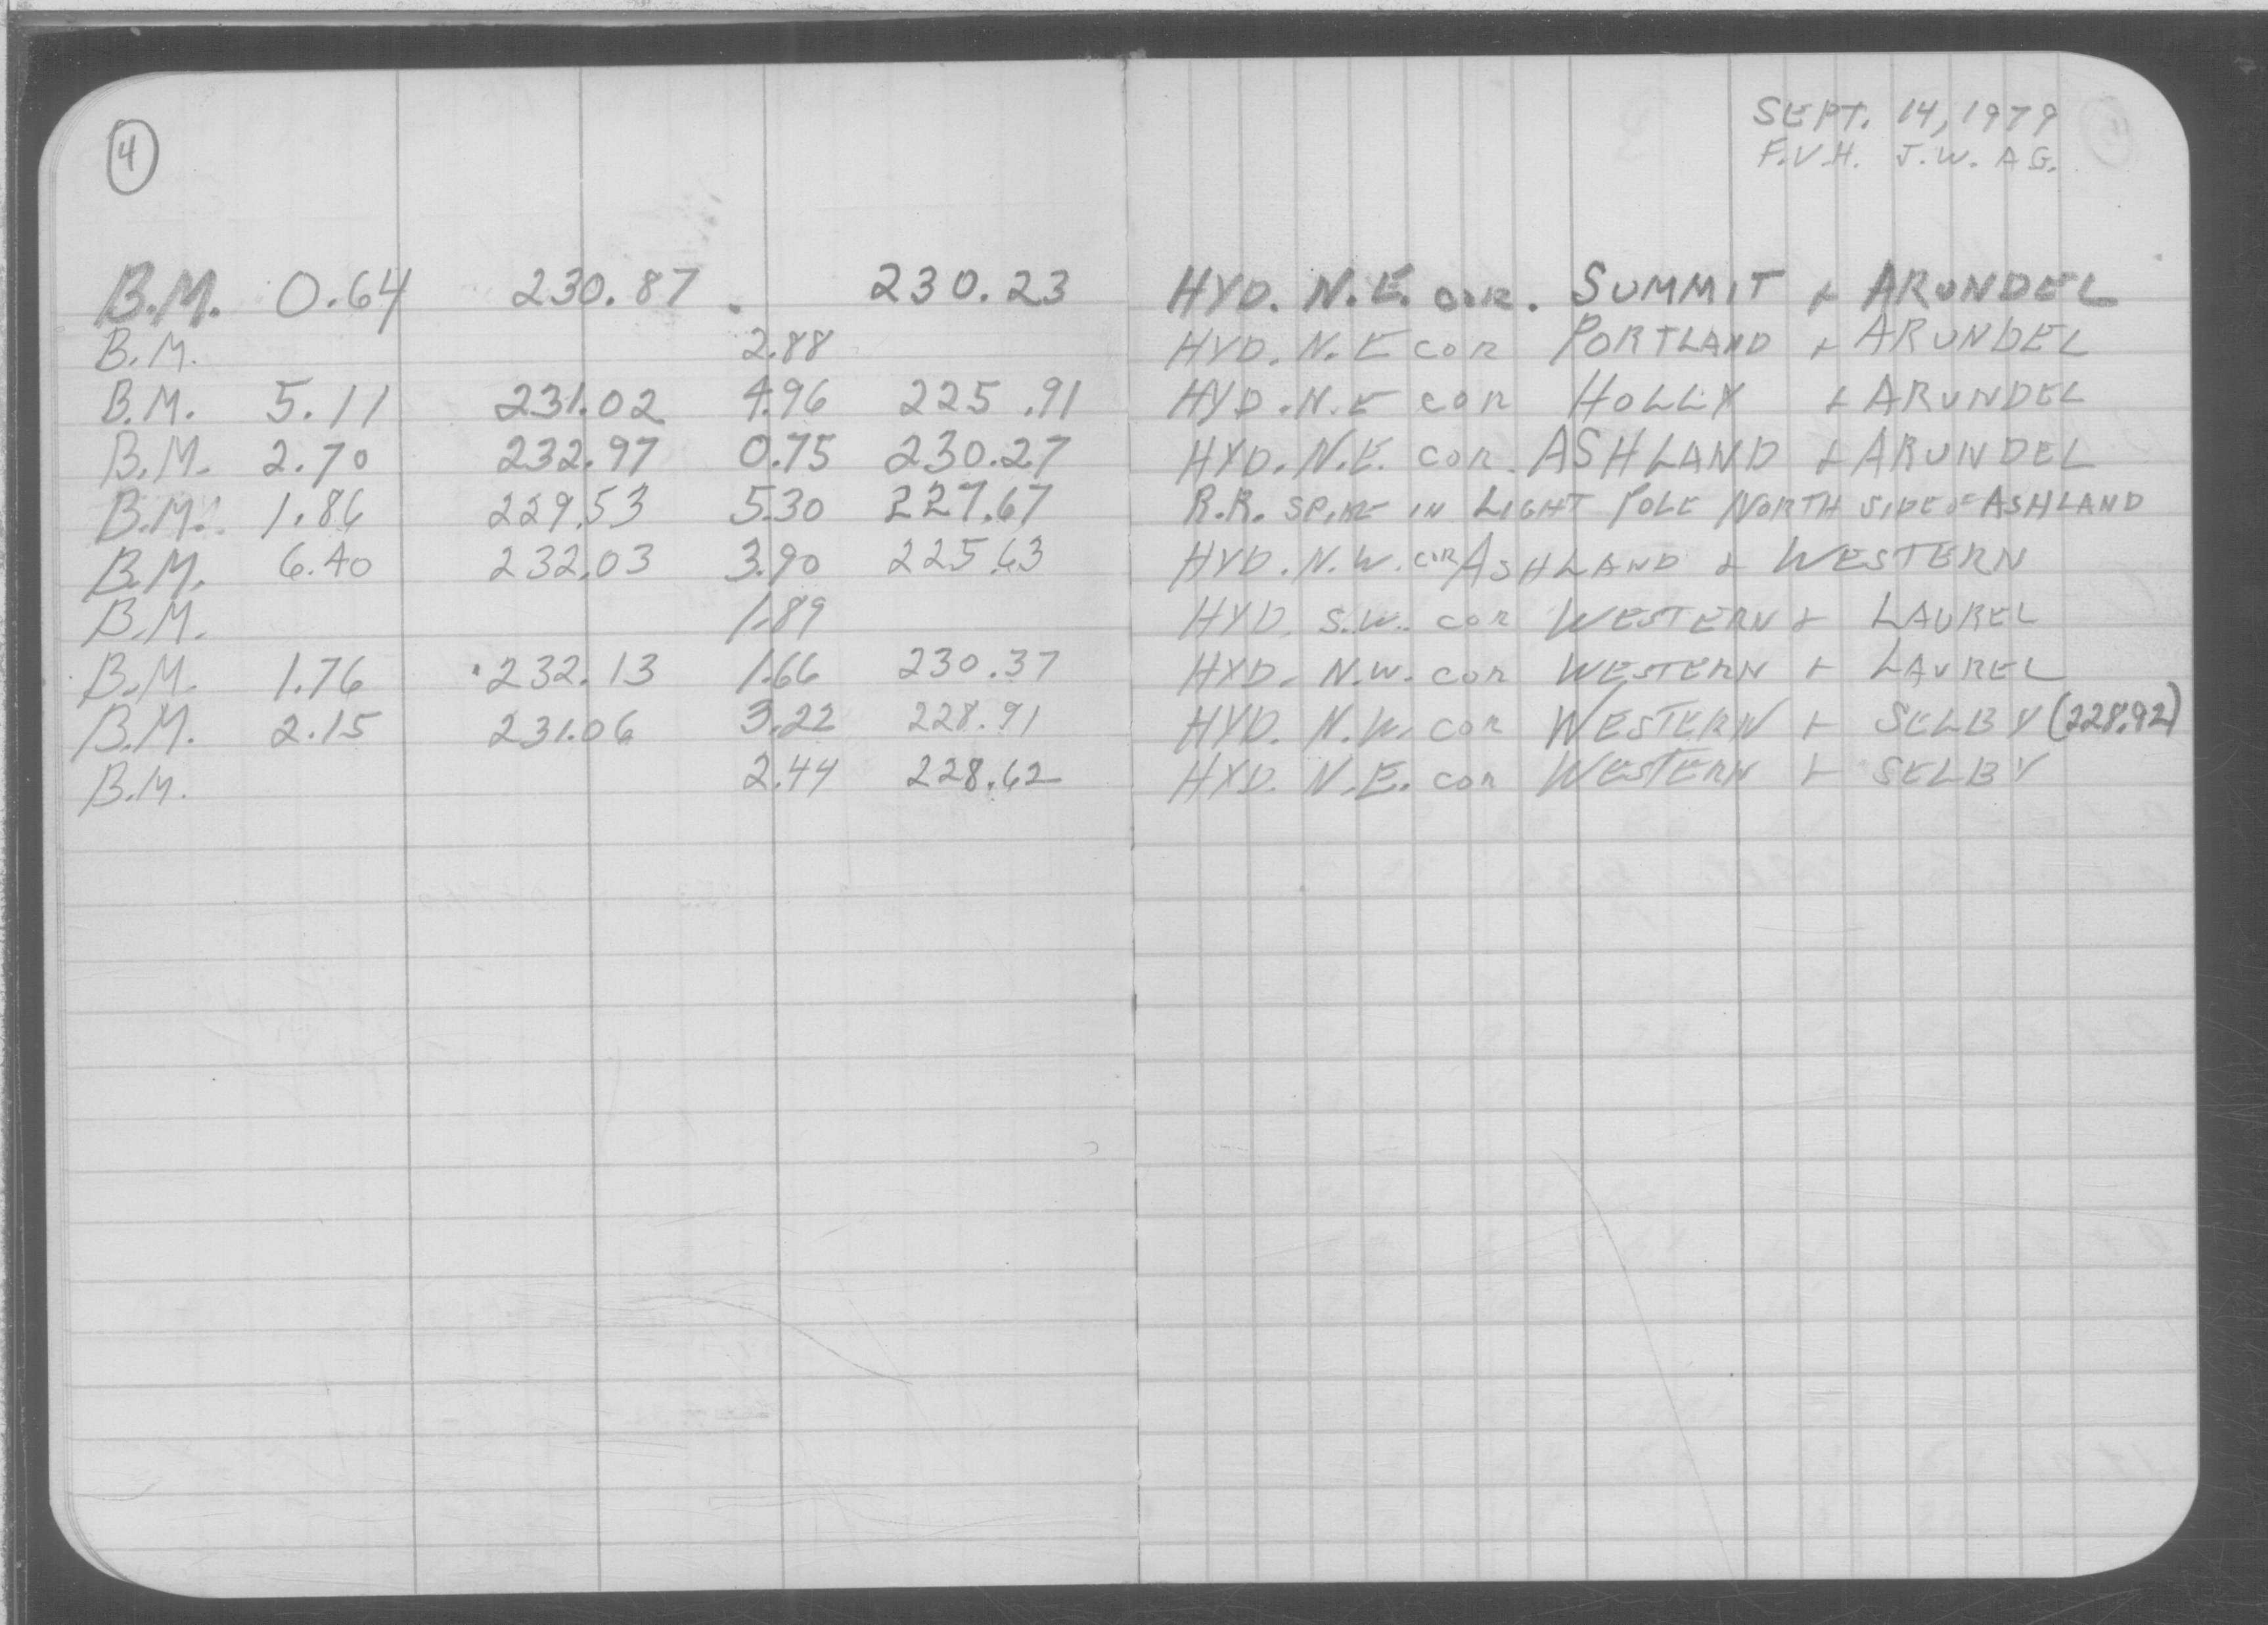 4
SEPT. 14, 1979
F.V.H. J.W. A G.
B.M. 0.64 230.87 . 230.23 HYD. N.E. cor. SUMMIT & ARUNDEL
B.M. 2.88 HYD. N.E cor PORTLAND & ARUNDEL
B.M. 5.11 231.02 4.96 225.91 HYD. N.E cor HOLLY & ARUNDEL
B.M. 2.70 232.97 0.75 230.27 HYD. N.E. cor. ASHLAND & ARUNDEL
B.M. 1.86 229.53 5.30 227.67 R.R. SPIKE IN LIGHT POLE NORTH SIDE OF ASHLAND
B.M. 6.40 232.03 3.90 225.63 HYD. N.W. cor ASHLAND & WESTERN
B.M. 1.89 HYD. S.W. cor WESTERN & LAUREL
B.M. 1.76 232.13 1.66 230.37 HYD. N.W. cor WESTERN & LAUREL
B.M. 2.15 231.06 3.22 228.91 HYD. N.W. cor WESTERN & SELBY (228.92)
B.M. 2.44 228.62 HYD. N.E. cor WESTERN & SELBY